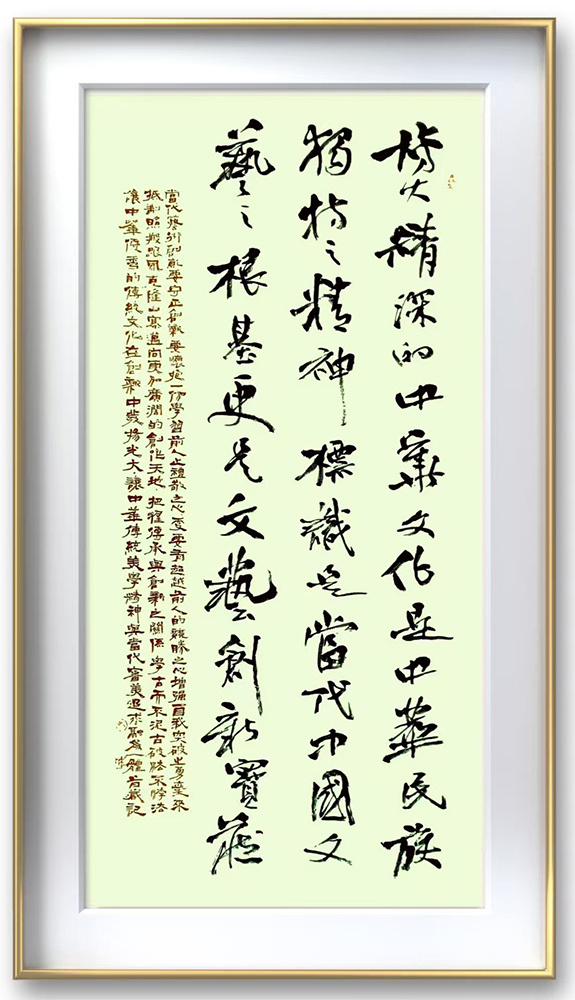 博大精深的中華文化是中華民族
獨特之精神標識是當代中國文
藝之根基更是文藝創新寶藏
當代藝術創新要守正創新要懷抱一份學習前人之禮敬之心更要有超越前人的競勝之心增強自我突破之勇氣來
抵制照搬跟風克隆山寨邁向更加廣闊的創作天地.把握傳承與創新之關係學古而不泥古破法不悖法
讓中華優秀的傳統文化在創新中發揚光大.讓中華傳統美學精神與當代審美追求融為一體